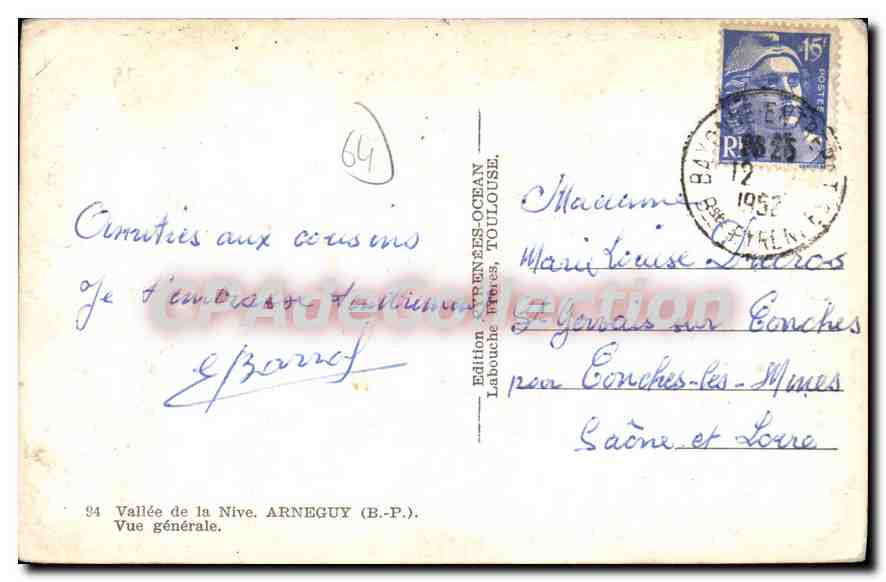 15F
POSTES
RF
BAYONNE ENTREPOT
12
1952
Bses PYRENEES
64
Amitiés aux cousins
Je t'embrasse tendrement
EBarrot
Edition PYRENÉES-OCEAN
Labouche Frères, TOULOUSE.
Madame
Marie Louise Ducros
St Gervais sur Conches
par Conches-les-Mines
Saône et Loire
94 Vallée de la Nive. ARNEGUY (B.-P.).
Vue générale.
CPAdeCollection